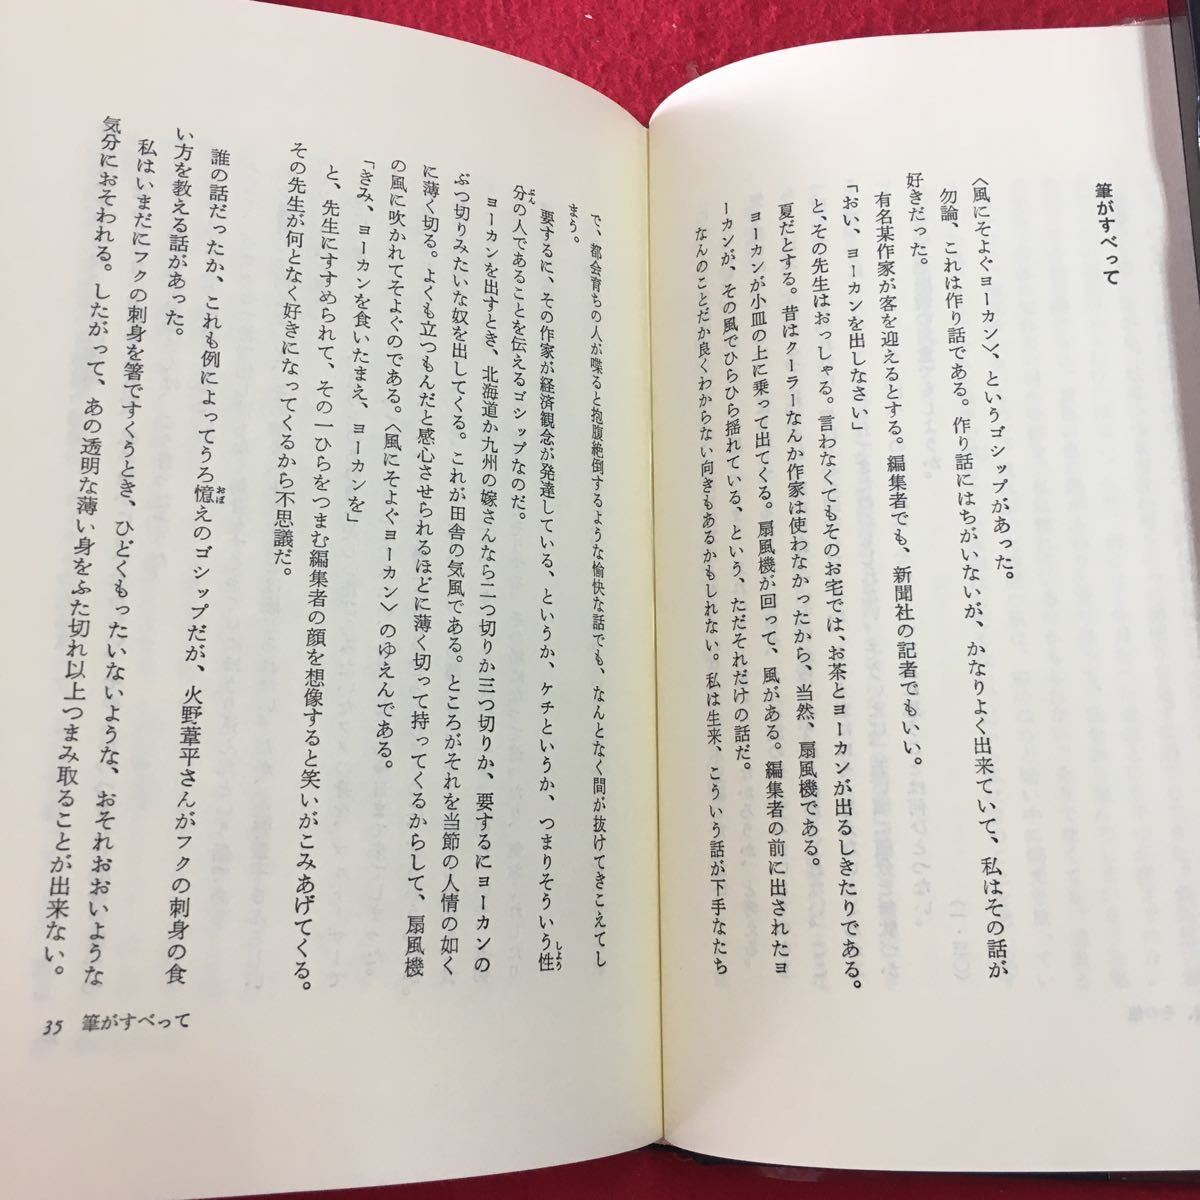 筆がすべって
〈風にそよぐヨーカン〉、というゴシップがあった。
勿論、これは作り話である。作り話にはちがいないが、かなりよく出来ていて、私はその話が
好きだった。
有名某作家が客を迎えるとする。編集者でも、新聞社の記者でもいい。
「おい、ヨーカンを出しなさい」
と、その先生はおっしゃる。言わなくてもそのお宅では、お茶とヨーカンが出るしきたりである。
夏だとする。昔はクーラーなんか作家は使わなかったから、当然、扇風機である。
ヨーカンが小皿の上に乗って出てくる。扇風機が回って、風がある。編集者の前に出されたヨ
ーカンが、その風でひらひら揺れている、という、ただそれだけの話だ。
なんのことだか良くわからない向きもあるかもしれない。私は生来、こういう話が下手なたち
で、都会育ちの人が喋ると抱腹絶倒するような愉快な話でも、なんとなく間が抜けてきこえてし
まう。
要するに、その作家が経済観念が発達している、というか、ケチというか、つまりそういう性
しょう
分の人であることを伝えるゴシップなのだ。
ぶん
ヨーカンを出すとき、北海道か九州の嫁さんなら二つ切りか三つ切りか、要するにヨーカンの
ぶつ切りみたいな奴を出してくる。これが田舎の気風である。ところがそれを当節の人情の如く
に薄く切る。よくも立つもんだと感心させられるほどに薄く切って持ってくるからして、扇風機
の風に吹かれてそよぐのである。〈風にそよぐヨーカン〉のゆえんである。
「きみ、ヨーカンを食いたまえ、ヨーカンを」
と、先生にすすめられて、その一ひらをつまむ編集者の顔を想像すると笑いがこみあげてくる。
その先生が何となく好きになってくるから不思議だ。
誰の話だったか、これも例によってうろ憶えのゴシップだが、火野葦平さんがフクの刺身の食
おぼ
い方を教える話があった。
私はいまだにフクの刺身を箸ですくうとき、ひどくもったいないような、おそれおおいような
気分におそわれる。したがって、あの透明な薄い身をふた切れ以上つまみ取ることが出来ない。
35 筆がすべって